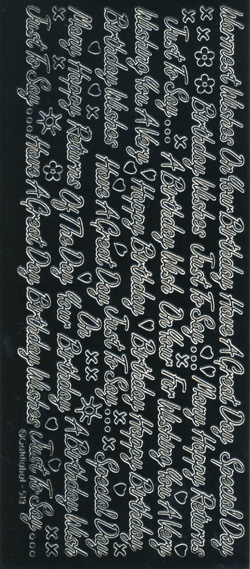 Warmest Wishes On Your Birthday Have A Great Day Special Day
Birthday Wishes Just To Say... Many Happy Returns
Just To Say... A Birthday Wish On Your For Wishing You A Very
Wishing You A Very Happy Birthday Happy Birthday
Birthday Wishes Have A Great Day Just To Say... Special Day
Many Happy Returns Of The Day On Your Birthday A Birthday Wish
Just To Say... Have A Great Day Birthday Wishes Just To Say...